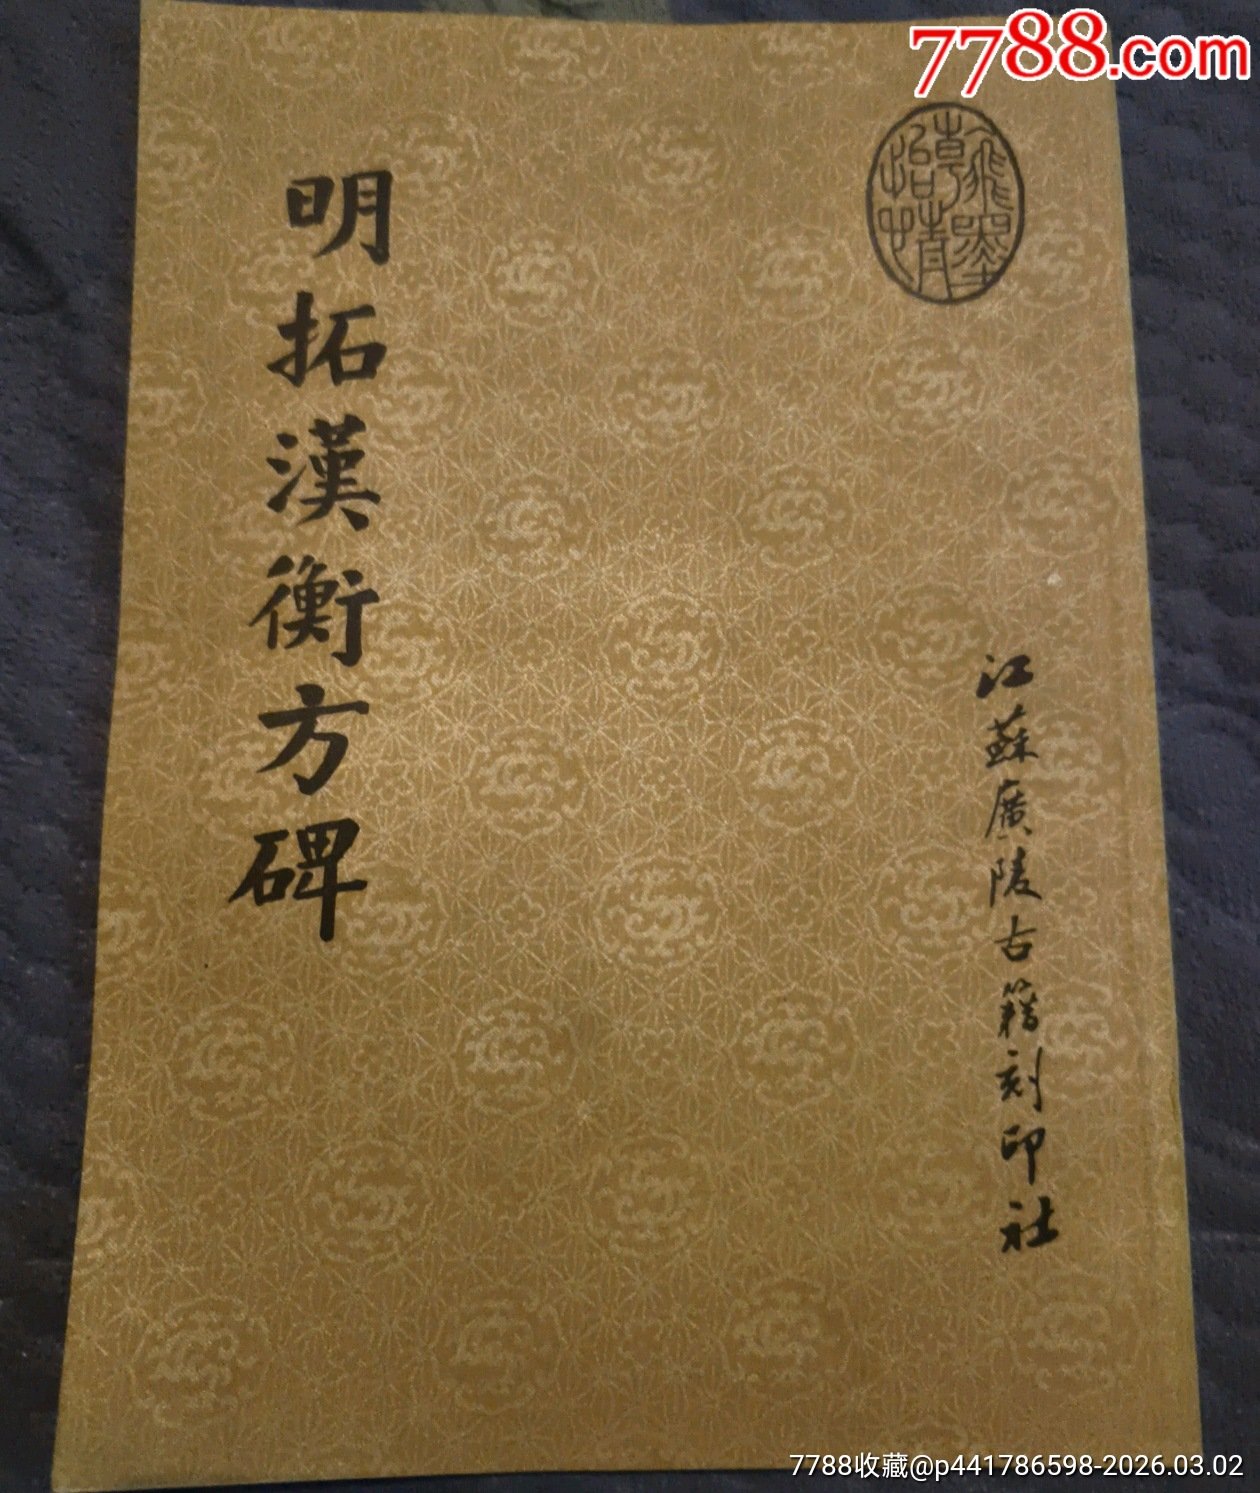 7788.com
翰墨怡情
明拓漢衡方碑
江蘇廣陵古籍刻印社
7788收藏@p441786598-2026.03.02